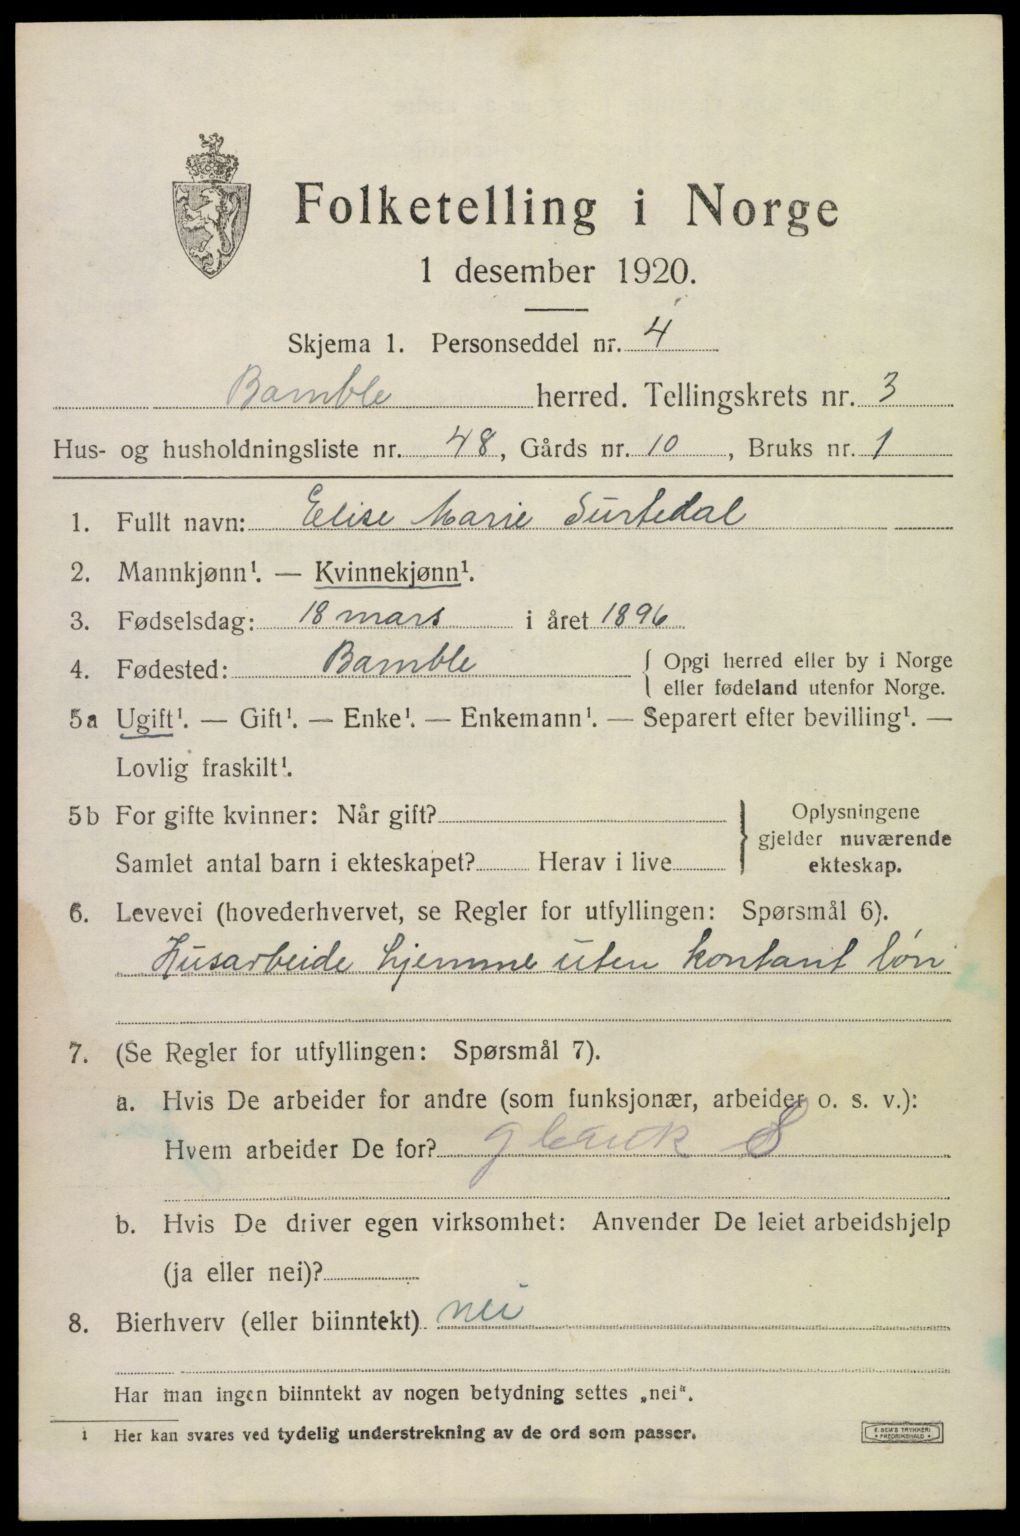 Folketelling i Norge
1 desember 1920.
Skjema 1. Personseddel nr. 4
Bamble herred. Tellingskrets nr. 3
Hus- og husholdningsliste nr. 48, Gårds nr. 10, Bruks nr. 1
1. Fullt navn: Elise Marie Surtedal
2. Mannkjønn¹. — Kvinnekjønn¹.
3. Fødselsdag: 18 mars i året 1896
4. Fødested: Bamble { Opgi herred eller by i Norge
eller fødeland utenfor Norge.
5a Ugift¹. — Gift¹. — Enke¹. — Enkemann¹. — Separert efter bevilling¹. —
Lovlig fraskilt¹.
5b For gifte kvinner: Når gift?
Samlet antal barn i ekteskapet? Herav i live
} Oplysningene
gjelder nuværende
ekteskap.
6. Levevei (hovederhvervet, se Regler for utfyllingen: Spørsmål 6).
Husarbeide hjemme uten kontant løn
7. (Se Regler for utfyllingen: Spørsmål 7).
a. Hvis De arbeider for andre (som funksjonær, arbeider o. s. v.):
Hvem arbeider De for? S
b. Hvis De driver egen virksomhet: Anvender De leiet arbeidshjelp
(ja eller nei)?
8. Bierhverv (eller biinntekt) nei
Har man ingen biinntekt av nogen betydning settes „nei“.
1 Her kan svares ved tydelig understrekning av de ord som passer.
E. SEM'S TRYKKERI
FREDRIKSHALD